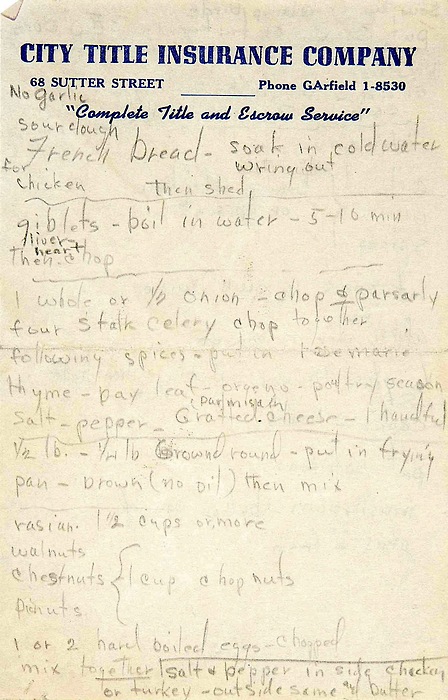 CITY TITLE INSURANCE COMPANY
68 SUTTER STREET Phone GArfield 1-8530
"Complete Title and Escrow Service"
No Garlic
sourdough
French bread - soak in cold water
wring out
for
chicken then shed,
giblets - boil in water - 5-10 min
liver
heart
then chop
1 whole or 1/2 onion - chop & parsarly
four stalk celery chop together
following spices - put in rosemarie
thyme - bay leaf - oregeno - poultry season
Parmisain
Salt - pepper - Gratted cheese - 1 handful
1/2 lb. - 1/4 lb Ground round - put in frying
pan - brown (no oil) then mix
rasian. 1 1/2 cups or more
walnuts
chestnuts { 1 cup chop nuts
pinuts
1 or 2 hard boiled eggs - chopped
mix together salt & pepper in side chicken
or turkey - outside same & butter